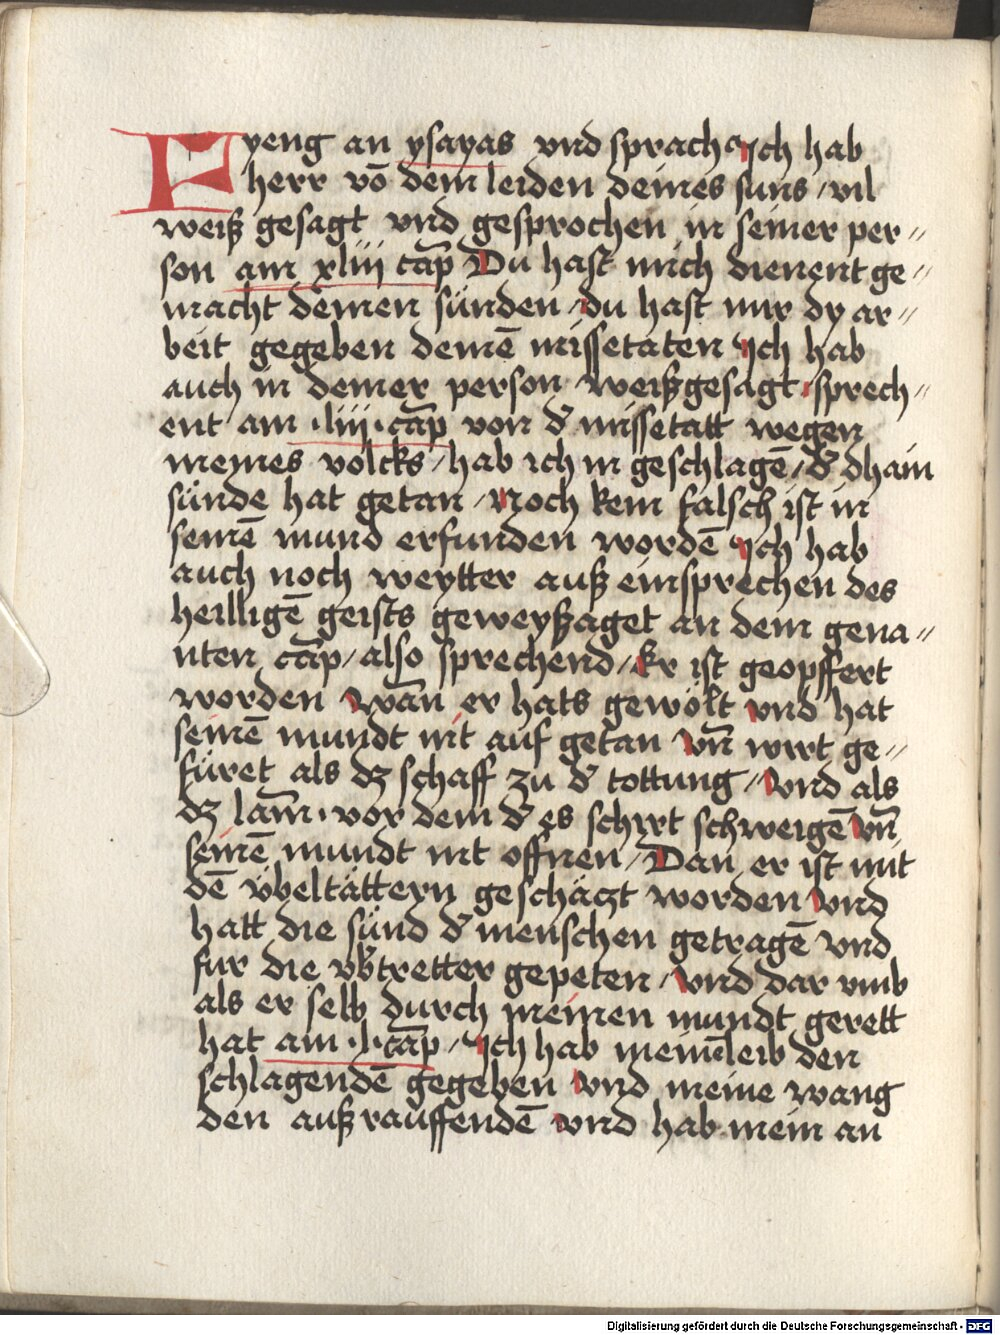 Eyeng an ysayas vnd sprach Jch hab
herr vō dem leiden deines suns / vil
weiß gesagt vnd gesprochen in seiner per〃
son am xliii cāp Du hast mich dienent ge〃
macht deinen sünden / du hast mir dy ar〃
beit gegeben deinē missetaten Jch hab
auch in deiner person weißgesagt sprech〃
ent am ·liii· cāp von d̄ missetatt wegen
meines volcks / hab ich in geschlagē / d̄ dhain
sünde hat getan / Noch kein falsch ist in
seinē mund erfunden wordē Jch hab
auch noch weytter auß einsprechen des
heilligē geists geweyßaget an dem gena〃
nten cāp / also sprechend / Er ist geopffert
worden wān er hats gewölt vnd hat
seinē mundt nit auf getan Vn̄ wirt ge〃
füret als dz schaff zu d̄ tottung 〃 Vnd als
dz lām · vor dem d̄ es schirt schweigē Vn̄
seinē mundt nit offnen / Dan er ist mit
dē vbeltättern geschäczt worden Vnd
hatt die sünd d̄ menschen getragē vnd
fur die vb̄tretter gepeten / Vnd dar vmb
als er selb durch meinen mundt gerett
hat am ·l· cāp / Jch hab mein leib den
schlagendē gegeben Vnd meine wang
den auß rauffendē vnd hab mein an
Digitalisierung gefördert durch die Deutsche Forschungsgemeinschaft - DFG